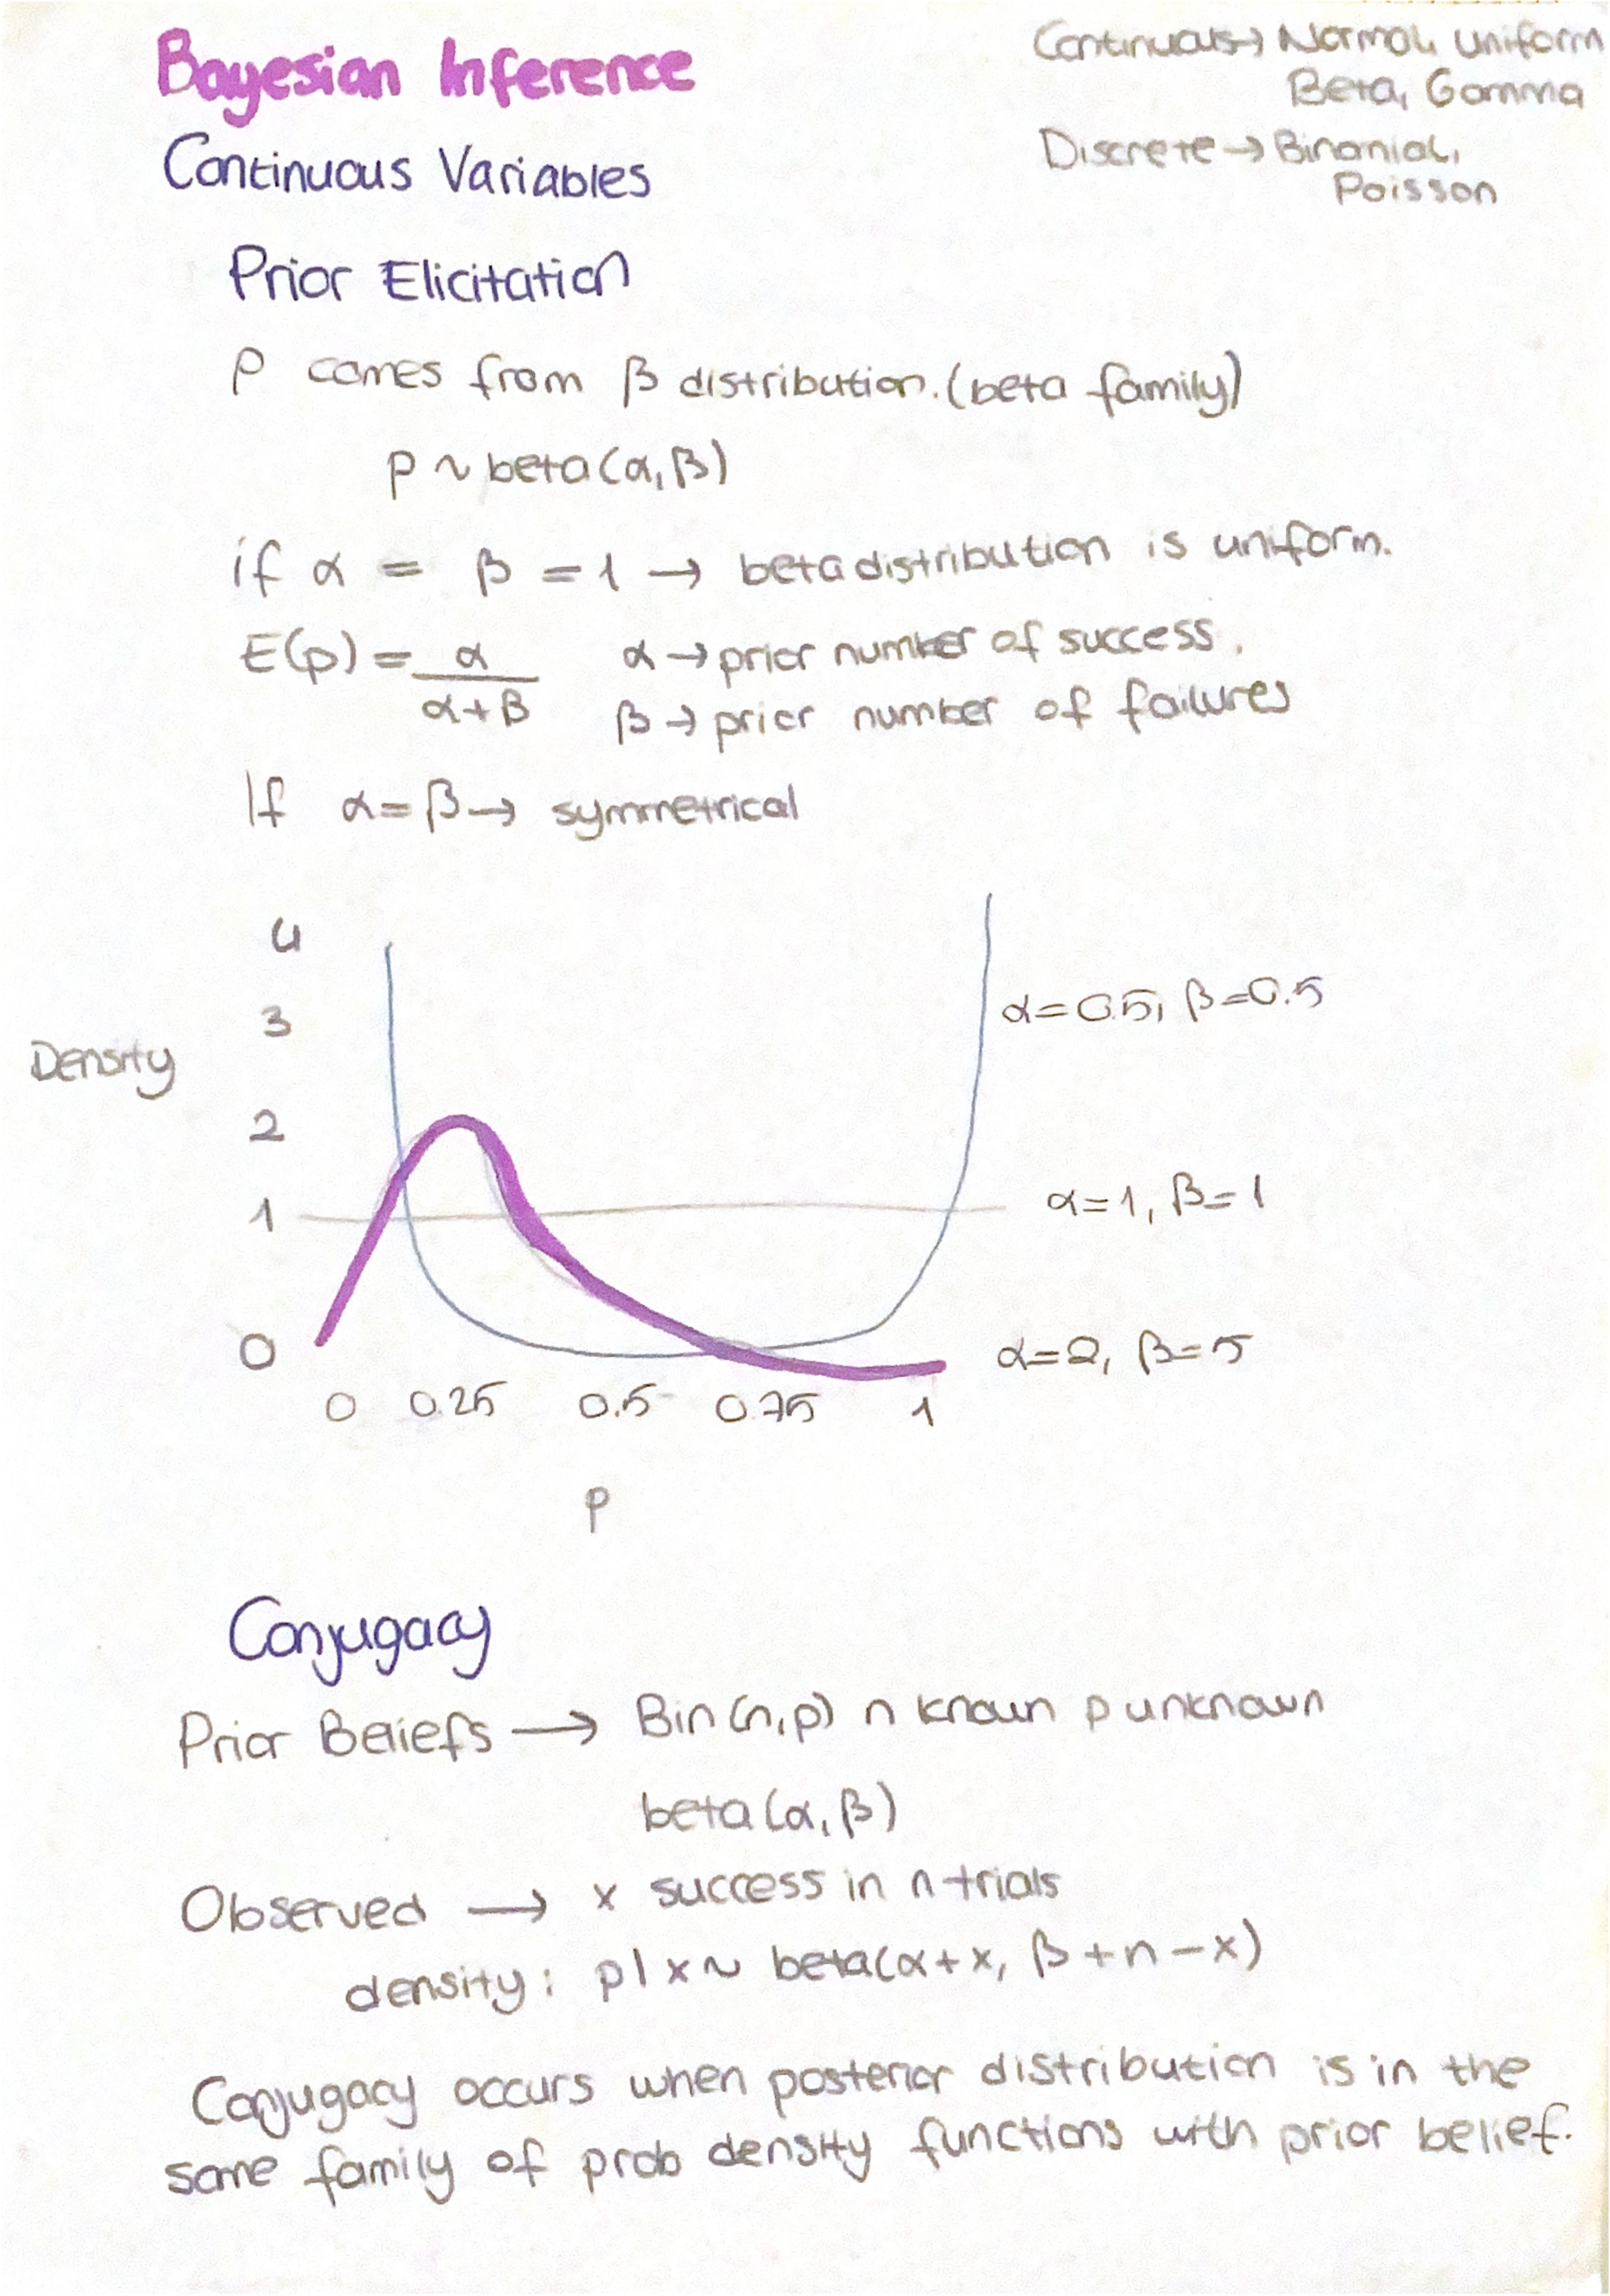 Bayesian Inference
Continuous → Normal, uniform
Beta, Gamma
Discrete → Binomial,
Poisson
Continuous Variables
Prior Elicitation
P comes from β distribution. (beta family)
p ~ beta(α, β)
if α = β = 1 → beta distribution is uniform.
E(p) = α / α+β
α → prior number of success.
β → prior number of failures
If α = β → symmetrical
4
3
Density
2
1
0
0 0.25 0.5 0.75 1
p
α=0.5, β=0.5
α=1, β=1
α=2, β=5
Conjugacy
Prior Beliefs → Bin(n,p) n known p unknown
beta(α, β)
Observed → x success in n trials
density: p|x ~ beta(α+x, β+n-x)
Conjugacy occurs when posterior distribution is in the
same family of prob density functions with prior belief.